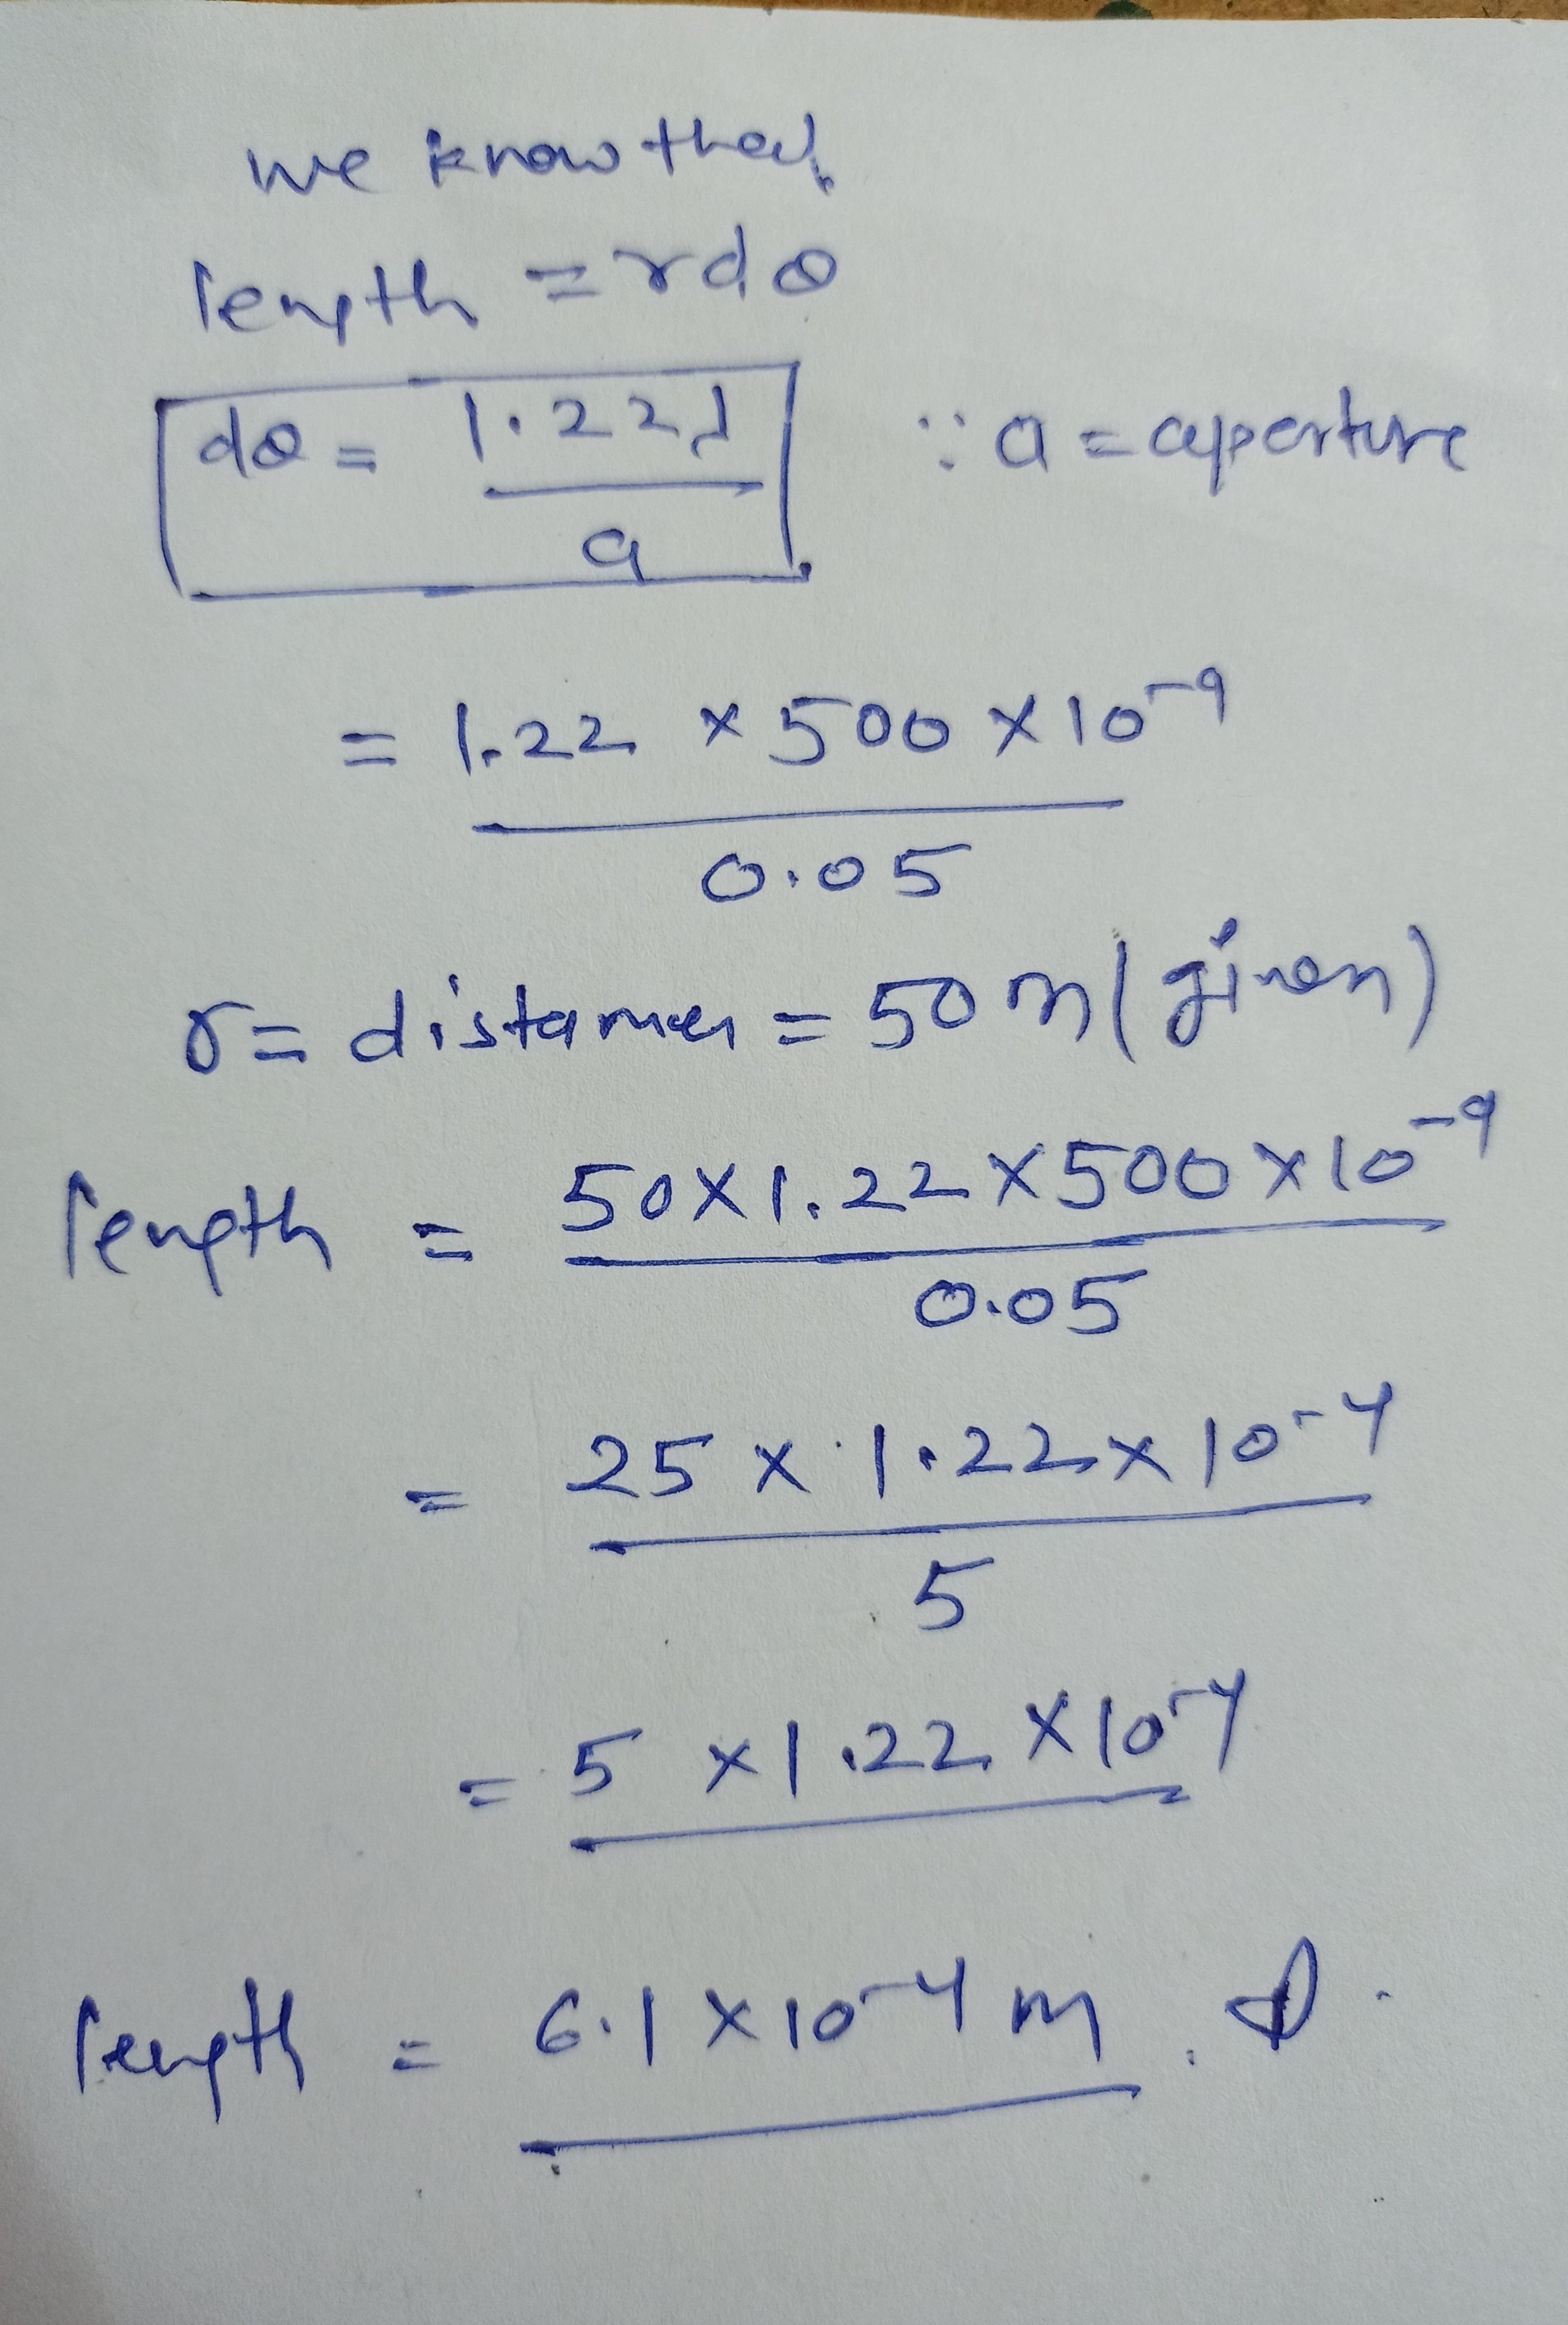 we know that
length = rdθ
dθ = 1.22λ / a ∵ a = aperture
= 1.22 × 500 × 10⁻⁹ / 0.05
r = distance = 50 m (given)
length = 50×1.22×500×10⁻⁹ / 0.05
= 25 × 1.22 × 10⁻⁴ / 5
= 5 × 1.22 × 10⁻⁴
length = 6.1 × 10⁻⁴ m.